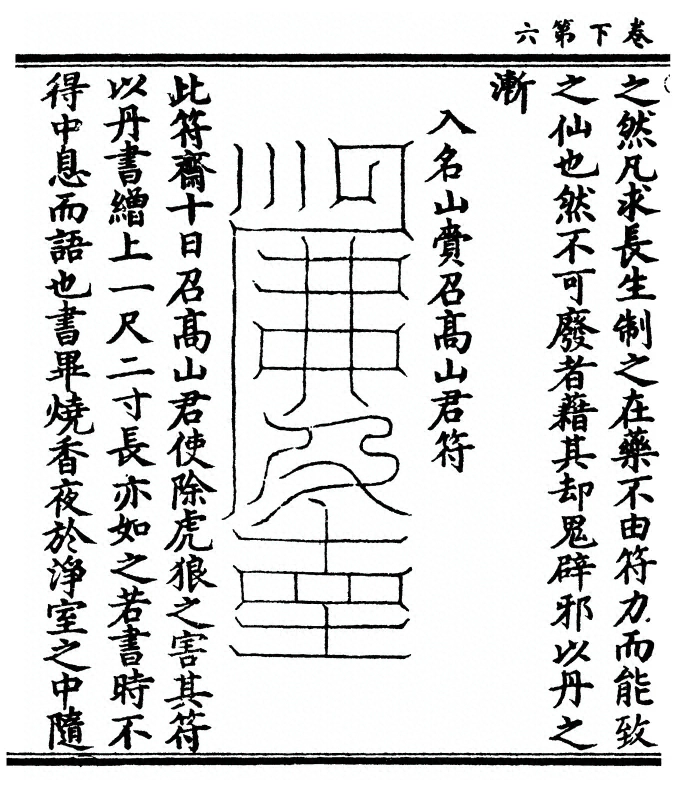 卷下第六
之然凡求長生制之在藥不由符力而能致
之仙也然不可廢者藉其却鬼辟邪以丹之
漸
入名山賚召高山君符
此符齋十日召高山君使除虎狼之害其符
以丹書繒上一尺二寸長亦如之若書時不
得中息而語也書畢燒香夜於淨室之中隨